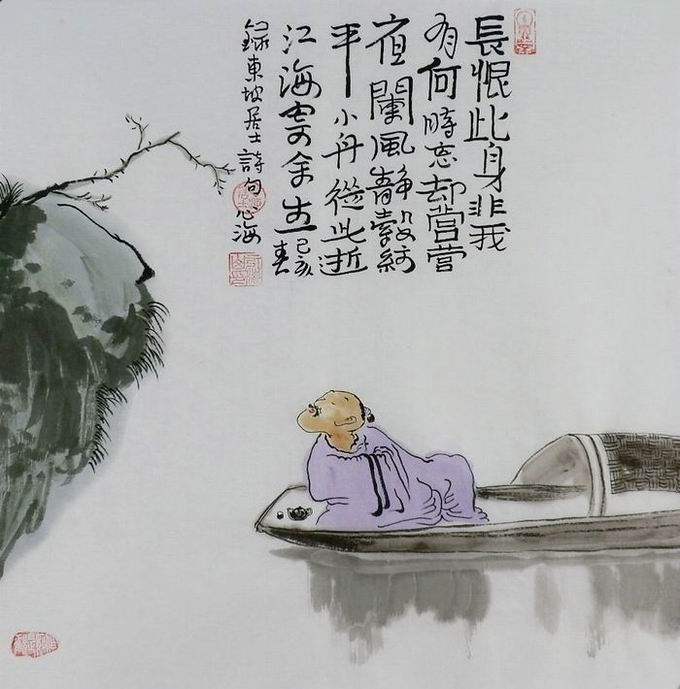 長恨此身非我
有何時忘却營營
夜闌風静縠紋
平小舟從此逝
江海寄余生己亥春
録東坡居士詩句心海